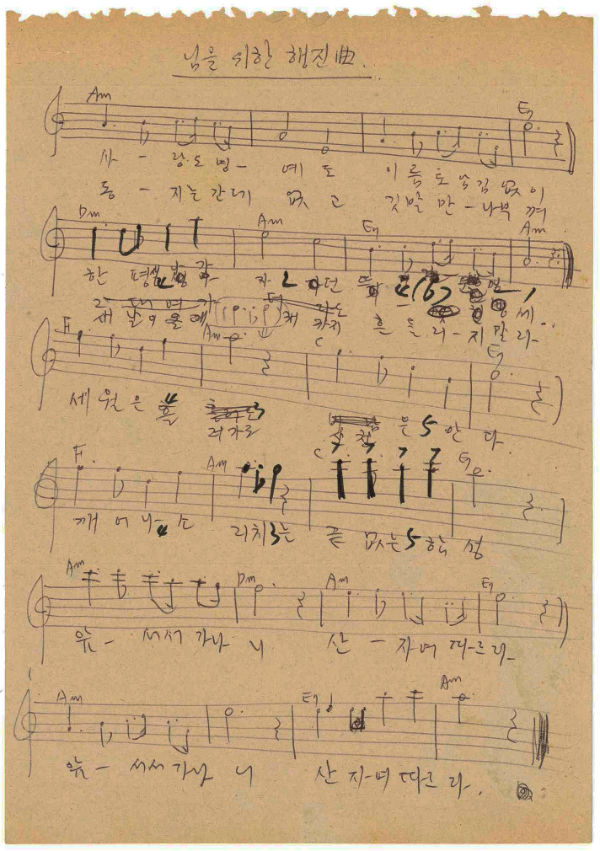 님을 위한 행진曲
Am E7
사 - 랑도 명 - 예 도 이 름도 남김 없 이
동 - 지는 간데 없 고 깃발 만 - 나부 껴
Dm Am E7 Am
한 평생 나 가 자 던 뜨
새 날이 올 때 까지 흔 들 리 - 지 말 라
F Am C E7
세 월은 흘 러가도
산 천 은 안 다
F Am C E7
깨 어 나 소 리치는 끝 없는 함 성
Am Dm Am E7
앞 - 서서 가나 니 산 - 자여 따르 라
Am E7 Am
앞 - 서서 가나 니 산 자여 따르 라.